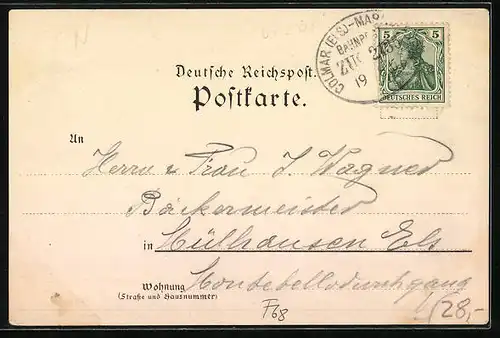 COLMAR (ELS)-MA
BAHNPO
ZUG
19
5 5
DEUTSCHES REICH
Deutsche Reichspost.
Postkarte.
An
Herrn & Frau J. Wagner
Bäckermeister
in Mülhausen Els
Wohnung Montebellodurchgang
(Straße und Hausnummer)
F68
28,-